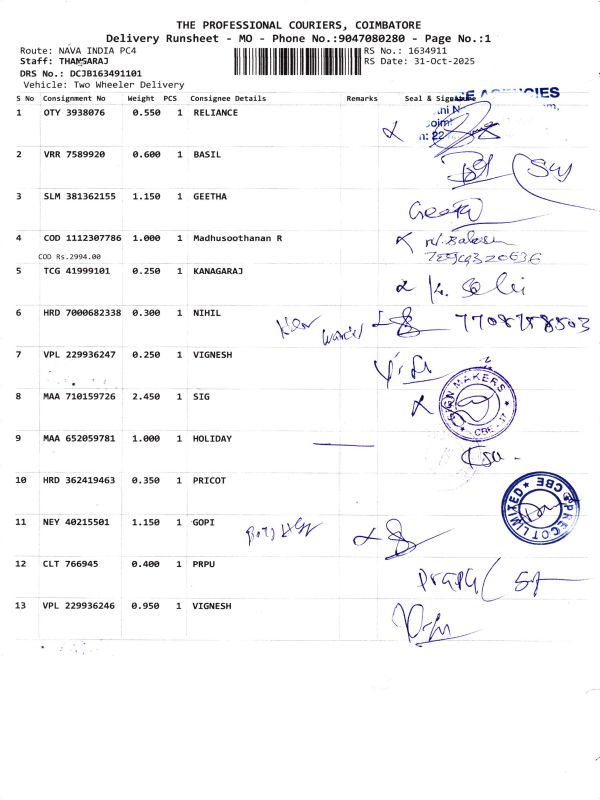 THE PROFESSIONAL COURIERS, COIMBATORE
Delivery Runsheet - MO - Phone No.:9047080280 - Page No.:1
Route: NAVA INDIA PC4 RS No.: 1634911
Staff: THANGARAJ RS Date: 31-Oct-2025
DRS No.: DCJB163491101
Vehicle: Two Wheeler Delivery
S No Consignment No Weight PCS Consignee Details Remarks Seal & Signature
1 OTY 3938076 0.550 1 RELIANCE
2 VRR 7589920 0.600 1 BASIL
3 SLM 381362155 1.150 1 GEETHA
Geetha
4 COD 1112307786 1.000 1 Madhusoothanan R
COD Rs.2994.00
5 TCG 41999101 0.250 1 KANAGARAJ
6 HRD 7000682338 0.300 1 NIHIL 7708788503
7 VPL 229936247 0.250 1 VIGNESH
8 MAA 710159726 2.450 1 SIG
SIGN MAKERS CBE - 17
9 MAA 652059781 1.000 1 HOLIDAY
10 HRD 362419463 0.350 1 PRICOT
PRECOT LIMITED CBE
11 NEY 40215501 1.150 1 GOPI
12 CLT 766945 0.400 1 PRPU
13 VPL 229936246 0.950 1 VIGNESH